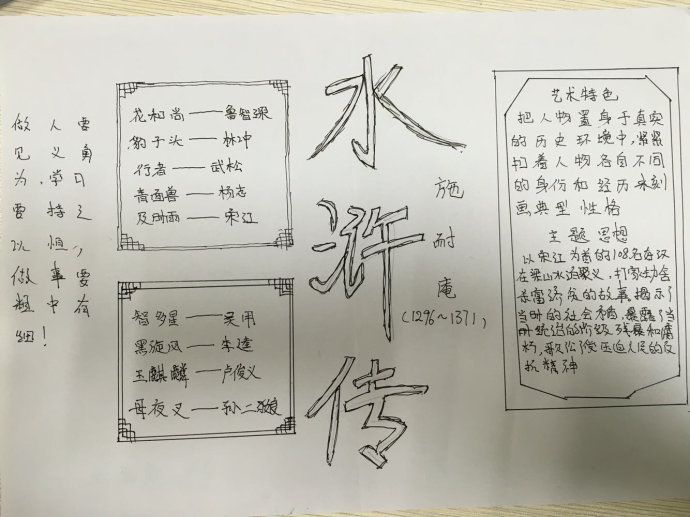 做人要
见义勇
为,学习
要持之
以恒,
做事要
粗中有
细!
花和尚——鲁智深
豹子头——林冲
行者——武松
青面兽——杨志
及时雨——宋江
智多星——吴用
黑旋风——李逵
玉麒麟——卢俊义
母夜叉——孙二娘
水浒传
施耐庵
(1296~1371)
艺术特色
把人物置身于真实
的历史环境中,紧紧
扣着人物各自不同
的身份和经历来刻
画典型性格
主题思想
以宋江为首的108名好汉
在梁山水泊聚义,打家劫舍
杀富济贫的故事,揭示了
当时的社会矛盾,暴露了当
时统治的阶级残暴和腐
朽,歌公了受压迫人民的反
抗精神